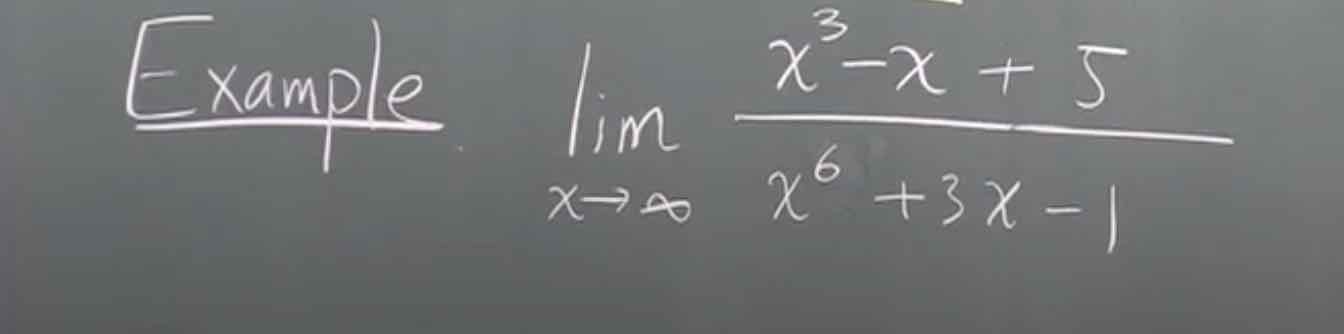 Example lim x→∞ x³-x+5
x⁶+3x-1